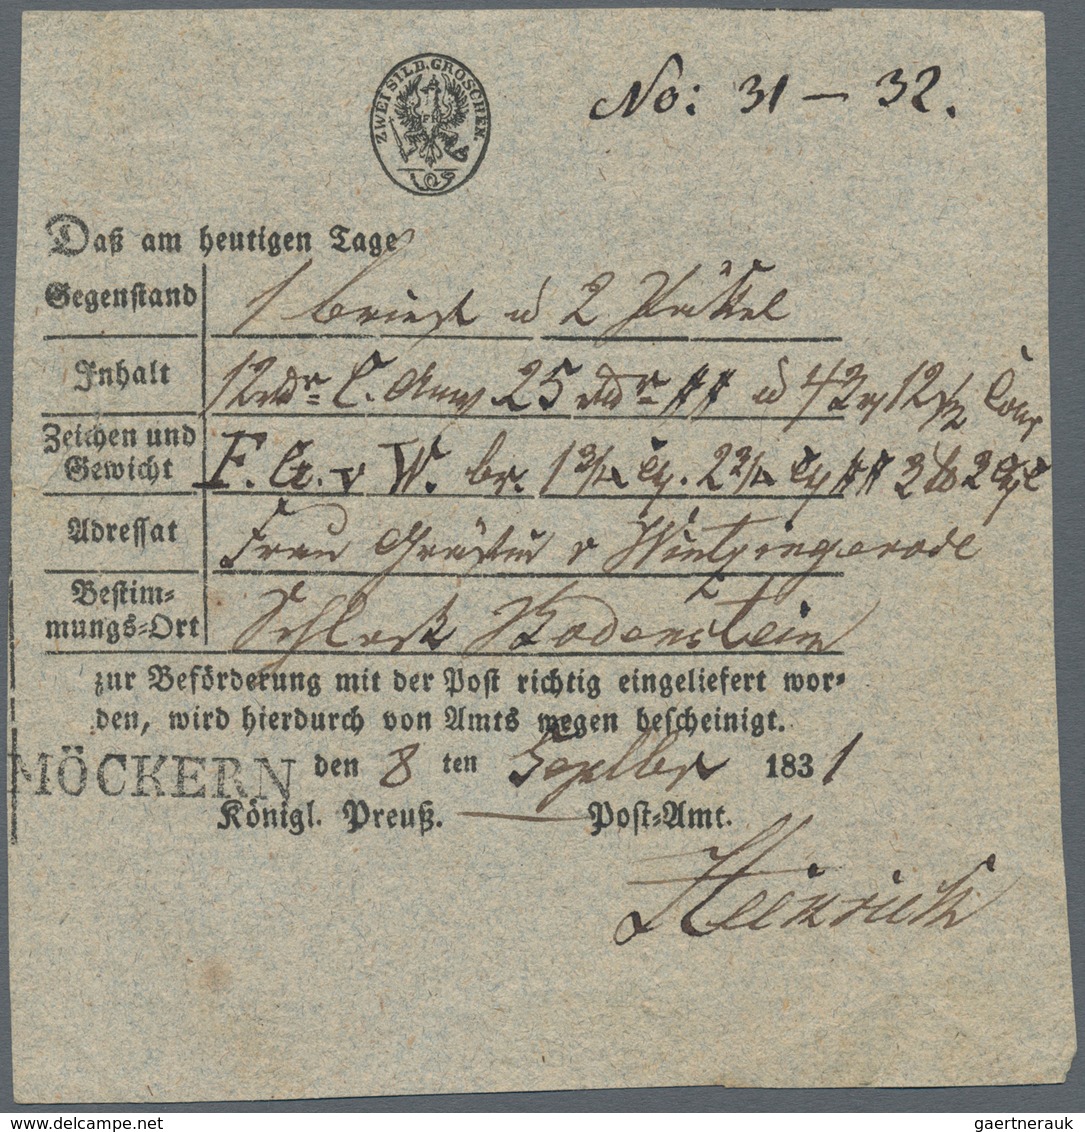 ZWEI SILB. GROSCHEN.
FR
No: 31 — 32.
Daß am heutigen Tage
Gegenstand 1 Brief u 2 Päckel
Inhalt 12 25 u 12 1/2
Zeichen und Gewicht F. G. v W. br.
Adressat Frau Gräfin v Wintzingerode
Bestim-
mungs-Ort Schloß Bodenstein
zur Beförderung mit der Post richtig eingeliefert wor-
den, wird hierdurch von Amts wegen bescheinigt.
MÖCKERN den 8 ten Septbr 1831
Königl. Preuß. — Post-Amt.
Heinrich
delcampe.net
gaertnerauk